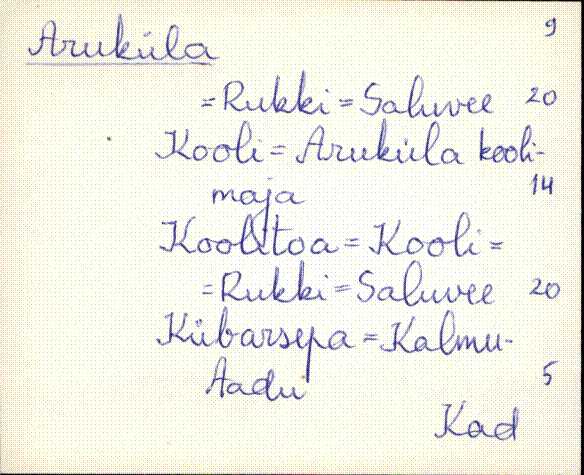 Aruküla 9
=Rukki=Saluvee 20
Kooli=Aruküla kooli-
maja 14
Koolitoa=Kooli=
=Rukki=Saluvee 20
Kübarsepa=Kalmu-
Aadu 5
Kad